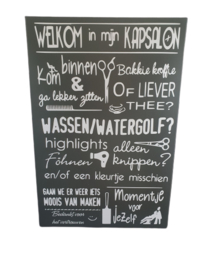 WELKOM in mijn KAPSALON
Kom binnen
& ga lekker zitten
Bakkie koffie
OF LIEVER
THEE?
WASSEN/WATERGOLF?
highlights alleen
Föhnen knippen?
en/of een kleurtje misschien
GAAN WE ER WEER IETS
MOOIS VAN MAKEN
Momentje
voor
jezelf
Bedankt voor
het vertrouwen